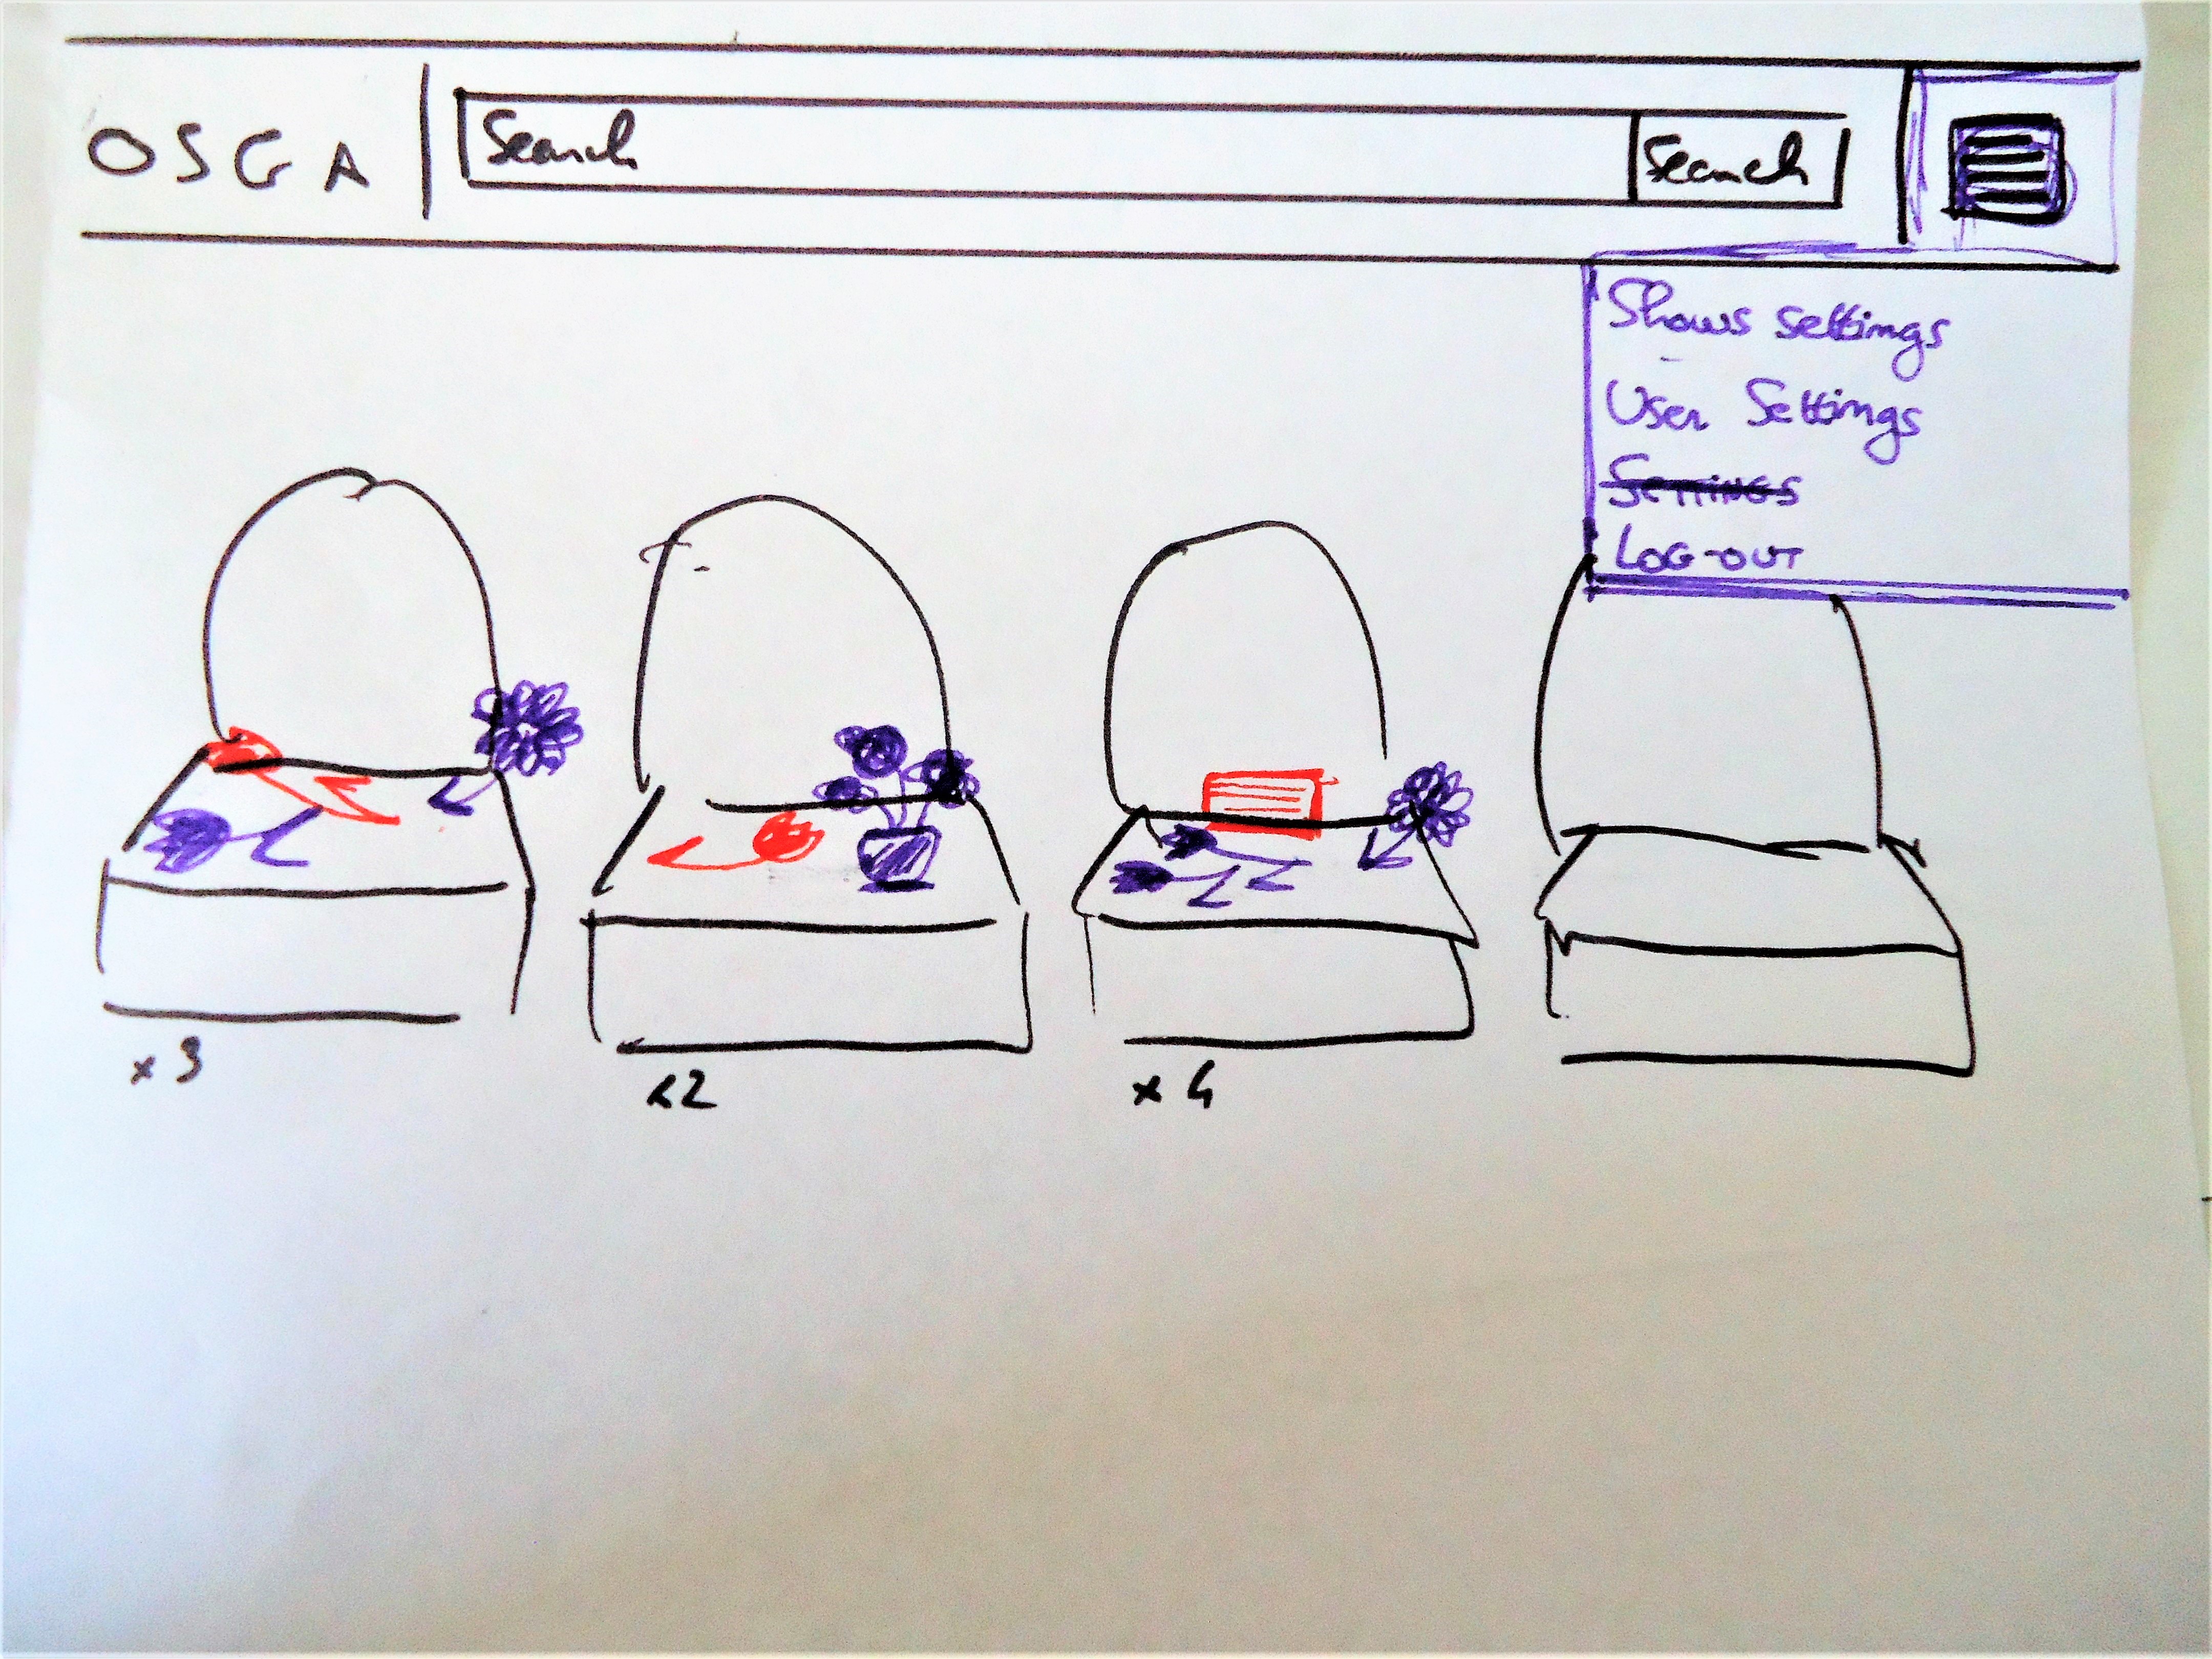 OSGA
Search
Search
Shows settings
User Settings
SETTINGS
LOG-OUT
x 3
x2
x 4